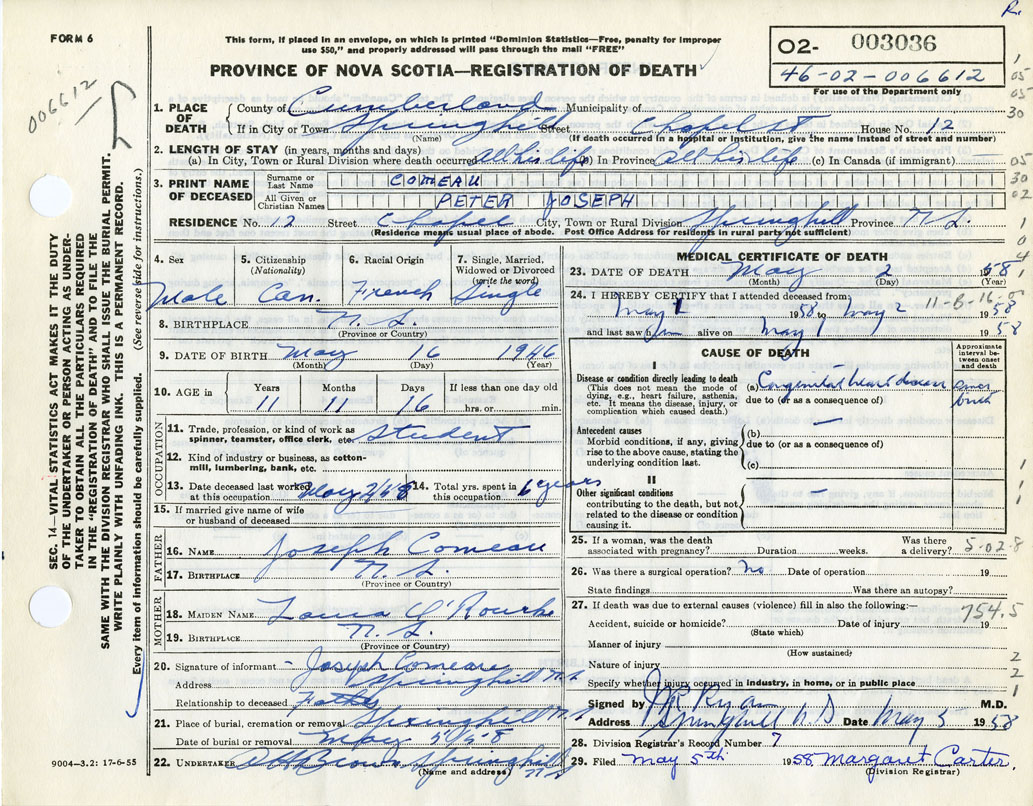 FORM 6
This form, if placed in an envelope, on which is printed "Dominion Statistics—Free, penalty for improper
use $50," and properly addressed will pass through the mail "FREE"
PROVINCE OF NOVA SCOTIA—REGISTRATION OF DEATH
02- 003036
46-02-006612
For use of the Department only
006612
1. PLACE OF DEATH
County of Cumberland Municipality of
If in City or Town Springhill Street Chapel St House No. 12
(Name) (If death occurred in a hospital or institution, give the name instead of street and number)
2. LENGTH OF STAY (in years, months and days)
(a) In City, Town or Rural Division where death occurred all his life (b) In Province all his life (c) In Canada (if immigrant) —
3. PRINT NAME OF DECEASED
Surname or Last Name COMEAU
All Given or Christian Names PETER JOSEPH
RESIDENCE No. 12 Street Chapel City, Town or Rural Division Springhill Province N.S.
(Residence means usual place of abode. Post Office Address for residents in rural parts not sufficient)
4. Sex Male
5. Citizenship (Nationality) Can.
6. Racial Origin French
7. Single, Married, Widowed or Divorced (write the word) Single
8. BIRTHPLACE N.S.
(Province or Country)
9. DATE OF BIRTH May 16 1946
(Month) (Day) (Year)
10. AGE in Years 11 Months 11 Days 16 If less than one day old hrs. or min.
OCCUPATION
11. Trade, profession, or kind of work as spinner, teamster, office clerk, etc. Student
12. Kind of industry or business, as cotton-mill, lumbering, bank, etc.
13. Date deceased last worked at this occupation May 2/58
14. Total yrs. spent in this occupation 6 years
15. If married give name of wife or husband of deceased
FATHER
16. NAME Joseph Comeau
17. BIRTHPLACE N.S.
(Province or Country)
MOTHER
18. MAIDEN NAME O'Rourke
19. BIRTHPLACE N.S.
(Province or Country)
20. Signature of informant – Joseph Comeau
Address Springhill N.S.
Relationship to deceased Father
21. Place of burial, cremation or removal Springhill N.S.
Date of burial or removal May 5/58
22. UNDERTAKER Brown Springhill N.S.
(Name and address)
9004-3.2: 17-6-55
MEDICAL CERTIFICATE OF DEATH
23. DATE OF DEATH May 2 1958
(Month) (Day)
24. I HEREBY CERTIFY that I attended deceased from:
May 1 1958 to May 2 1958
11-B-16-0
and last saw him alive on May 1 1958
CAUSE OF DEATH
Approximate interval between onset and death
I
Disease or condition directly leading to death
(This does not mean the mode of dying, e.g., heart failure, asthenia, etc. It means the disease, injury, or complication which caused death.)
(a) Congenital heart disease since birth
due to (or as a consequence of)
Antecedent causes
Morbid conditions, if any, giving rise to the above cause, stating the underlying condition last.
(b) —
due to (or as a consequence of)
(c)
II
Other significant conditions —
contributing to the death, but not related to the disease or condition causing it.
25. If a woman, was the death associated with pregnancy? Duration weeks. Was there a delivery?
5-02-8
26. Was there a surgical operation? No Date of operation 19
State findings Was there an autopsy?
27. If death was due to external causes (violence) fill in also the following:—
754.5
Accident, suicide or homicide? Date of injury 19
(State which)
Manner of injury
(How sustained)
Nature of injury
Specify whether injury occurred in industry, in home, or in public place
Signed by Ryan M.D.
Address Springhill N.S Date May 5 1958
28. Division Registrar's Record Number 7
29. Filed May 5th 1958 Margaret Carter.
(Division Registrar)
SEC. 14—VITAL STATISTICS ACT MAKES IT THE DUTY
OF THE UNDERTAKER OR PERSON ACTING AS UNDER-
TAKER TO OBTAIN ALL THE PARTICULARS REQUIRED
IN THE "REGISTRATION OF DEATH" AND TO FILE THE
SAME WITH THE DIVISION REGISTRAR WHO SHALL ISSUE THE BURIAL PERMIT.
WRITE PLAINLY WITH UNFADING INK. THIS IS A PERMANENT RECORD.
Every item of information should be carefully supplied. (See reverse side for instructions.)
1
05
05
30
05
30
02
1
0
4
1
1
1
2
2
1